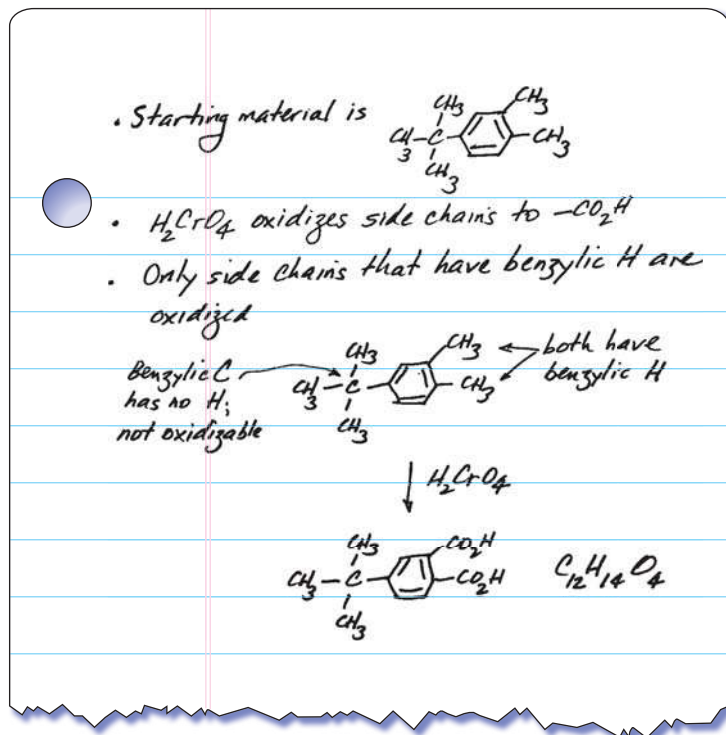 • Starting material is
CH3
CH3
CH3–C
CH3
CH3
• H2CrO4 oxidizes side chains to –CO2H
• Only side chains that have benzylic H are
oxidized
Benzylic C
has no H;
not oxidizable
CH3
CH3
CH3–C
CH3
CH3
both have
benzylic H
H2CrO4
CH3
CO2H
CH3–C
CO2H
CH3
C12H14O4